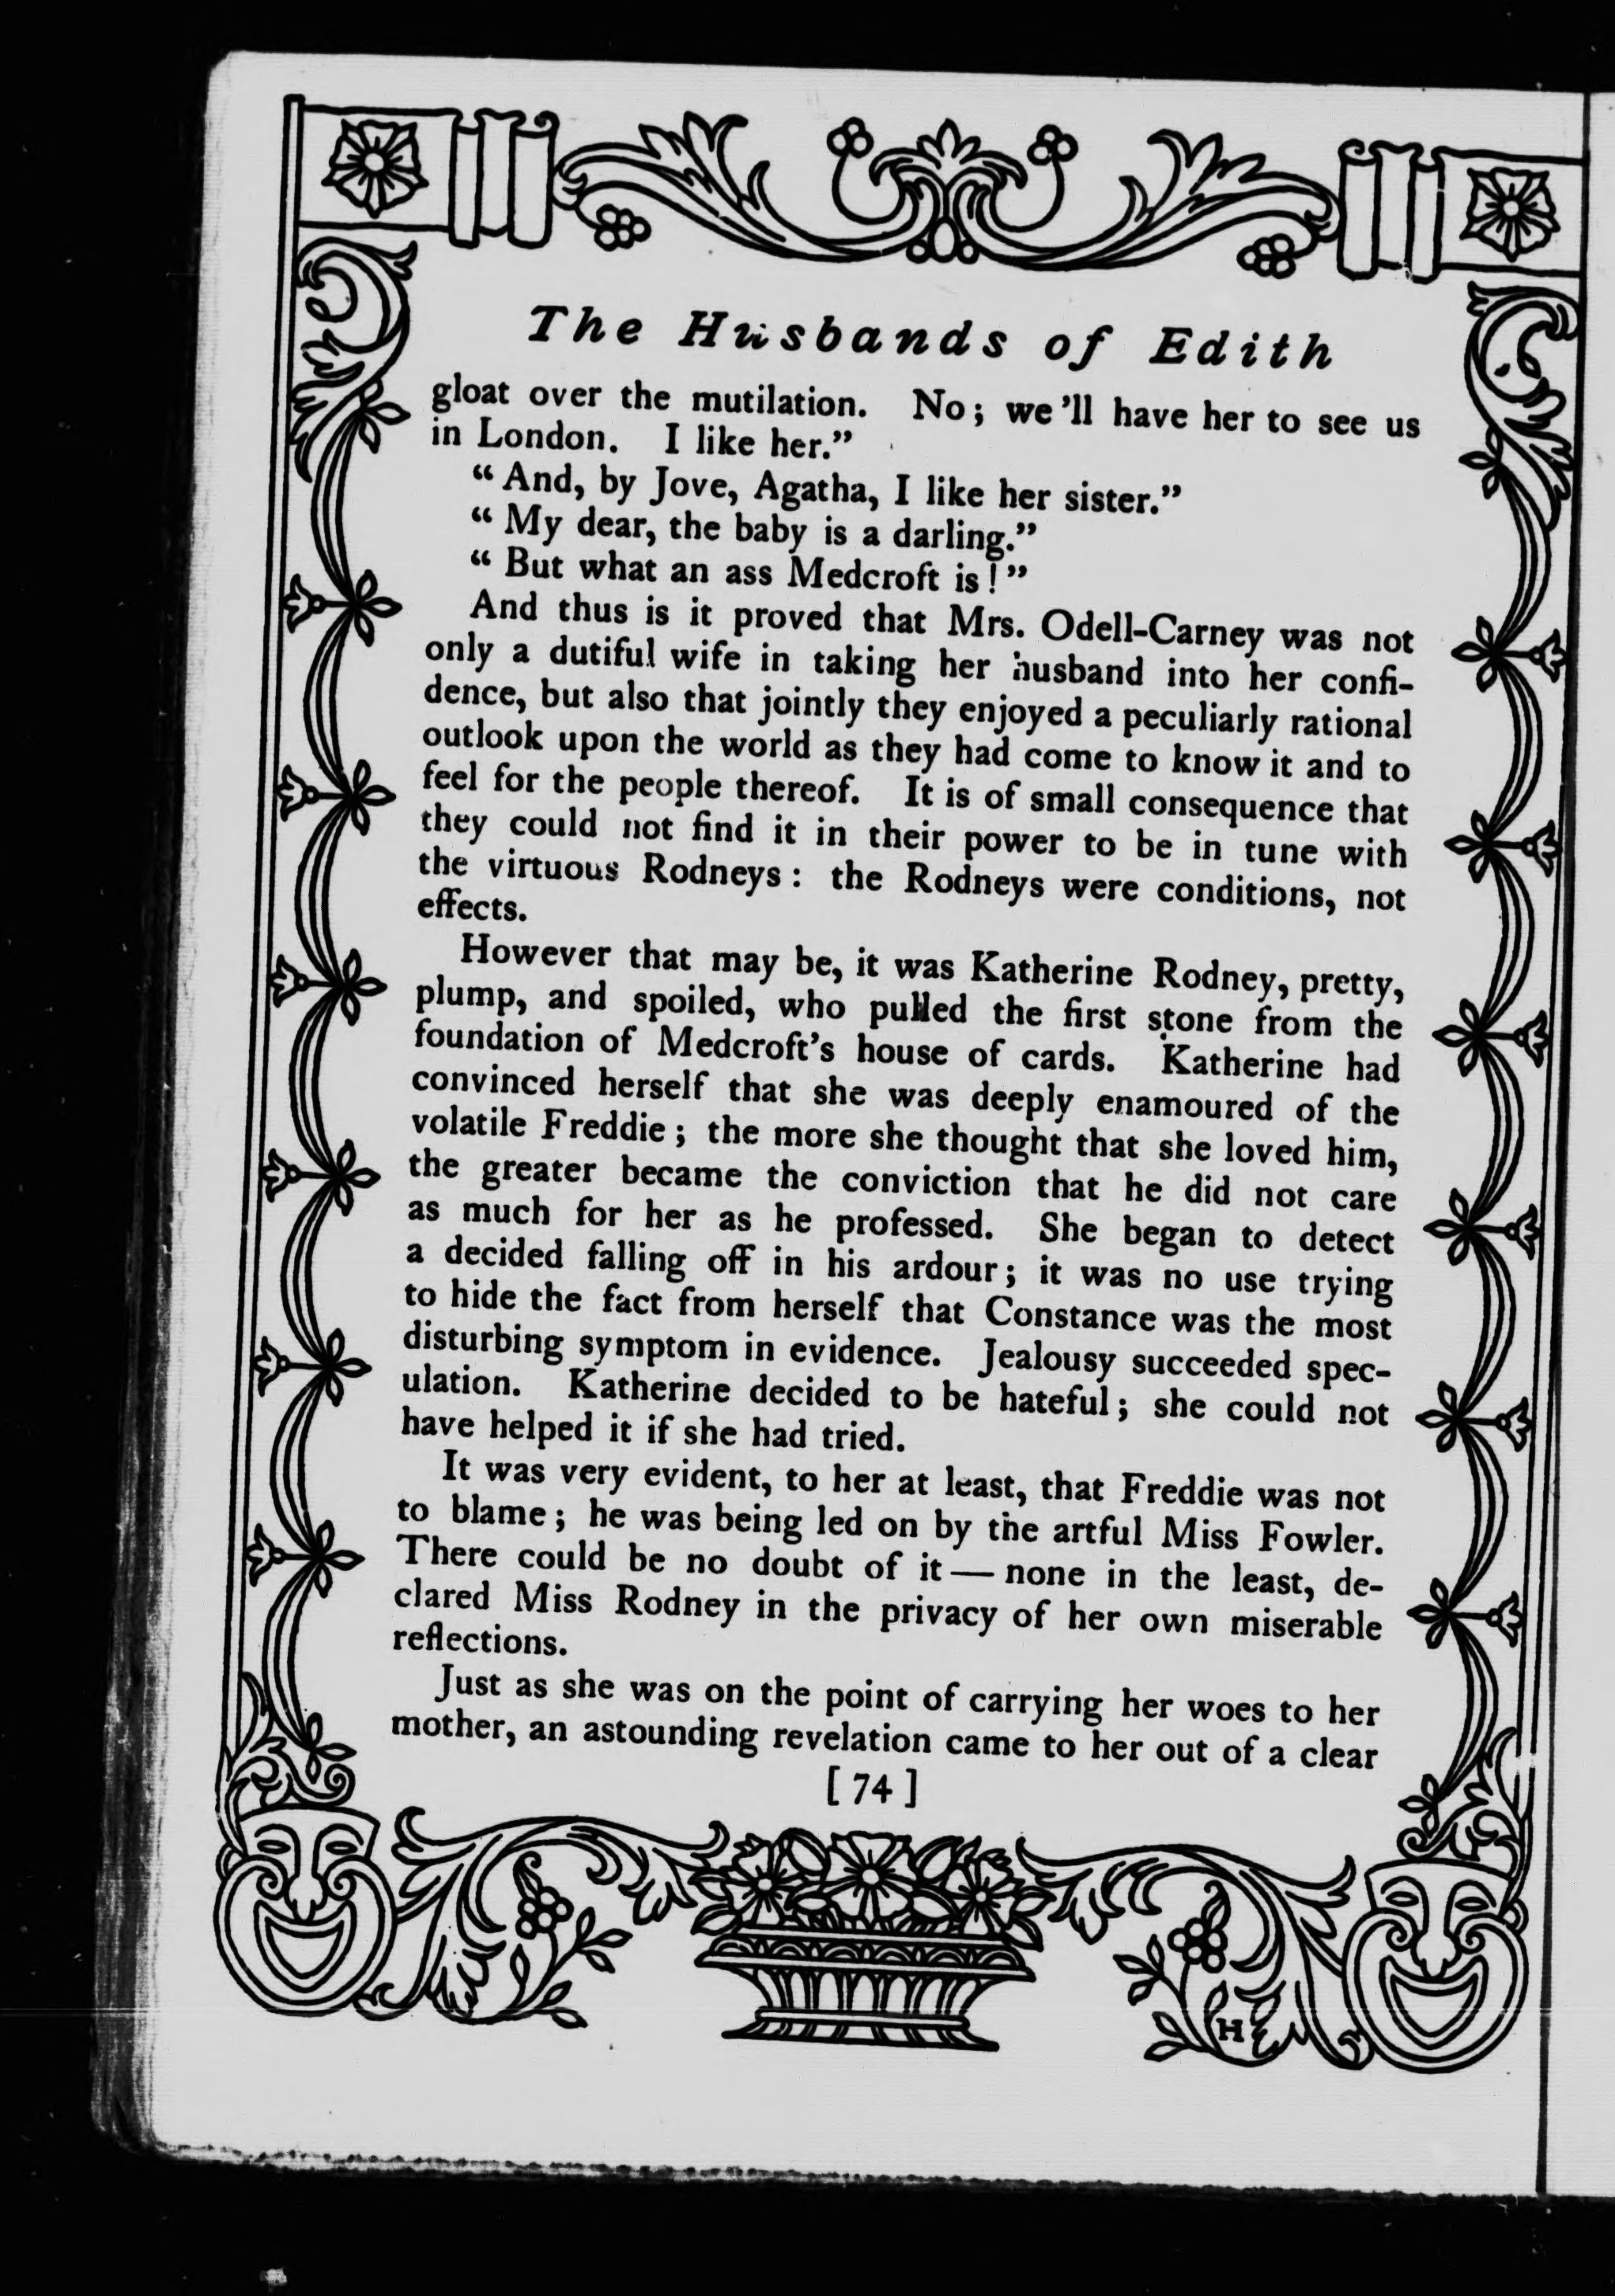 The Husbands of Edith
gloat over the mutilation. No; we'll have her to see us
in London. I like her."
"And, by Jove, Agatha, I like her sister."
"My dear, the baby is a darling."
"But what an ass Medcroft is!"
And thus is it proved that Mrs. Odell-Carney was not
only a dutiful wife in taking her husband into her confi-
dence, but also that jointly they enjoyed a peculiarly rational
outlook upon the world as they had come to know it and to
feel for the people thereof. It is of small consequence that
they could not find it in their power to be in tune with
the virtuous Rodneys: the Rodneys were conditions, not
effects.
However that may be, it was Katherine Rodney, pretty,
plump, and spoiled, who pulled the first stone from the
foundation of Medcroft's house of cards. Katherine had
convinced herself that she was deeply enamoured of the
volatile Freddie; the more she thought that she loved him,
the greater became the conviction that he did not care
as much for her as he professed. She began to detect
a decided falling off in his ardour; it was no use trying
to hide the fact from herself that Constance was the most
disturbing symptom in evidence. Jealousy succeeded spec-
ulation. Katherine decided to be hateful; she could not
have helped it if she had tried.
It was very evident, to her at least, that Freddie was not
to blame; he was being led on by the artful Miss Fowler.
There could be no doubt of it—none in the least, de-
clared Miss Rodney in the privacy of her own miserable
reflections.
Just as she was on the point of carrying her woes to her
mother, an astounding revelation came to her out of a clear
[74]
H